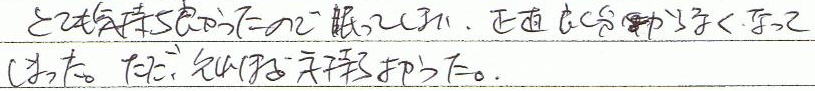 とても気持ち良かったので眠ってしまい、正直良く分からなくなって
しまった。ただ、それほど気持ちよかった。